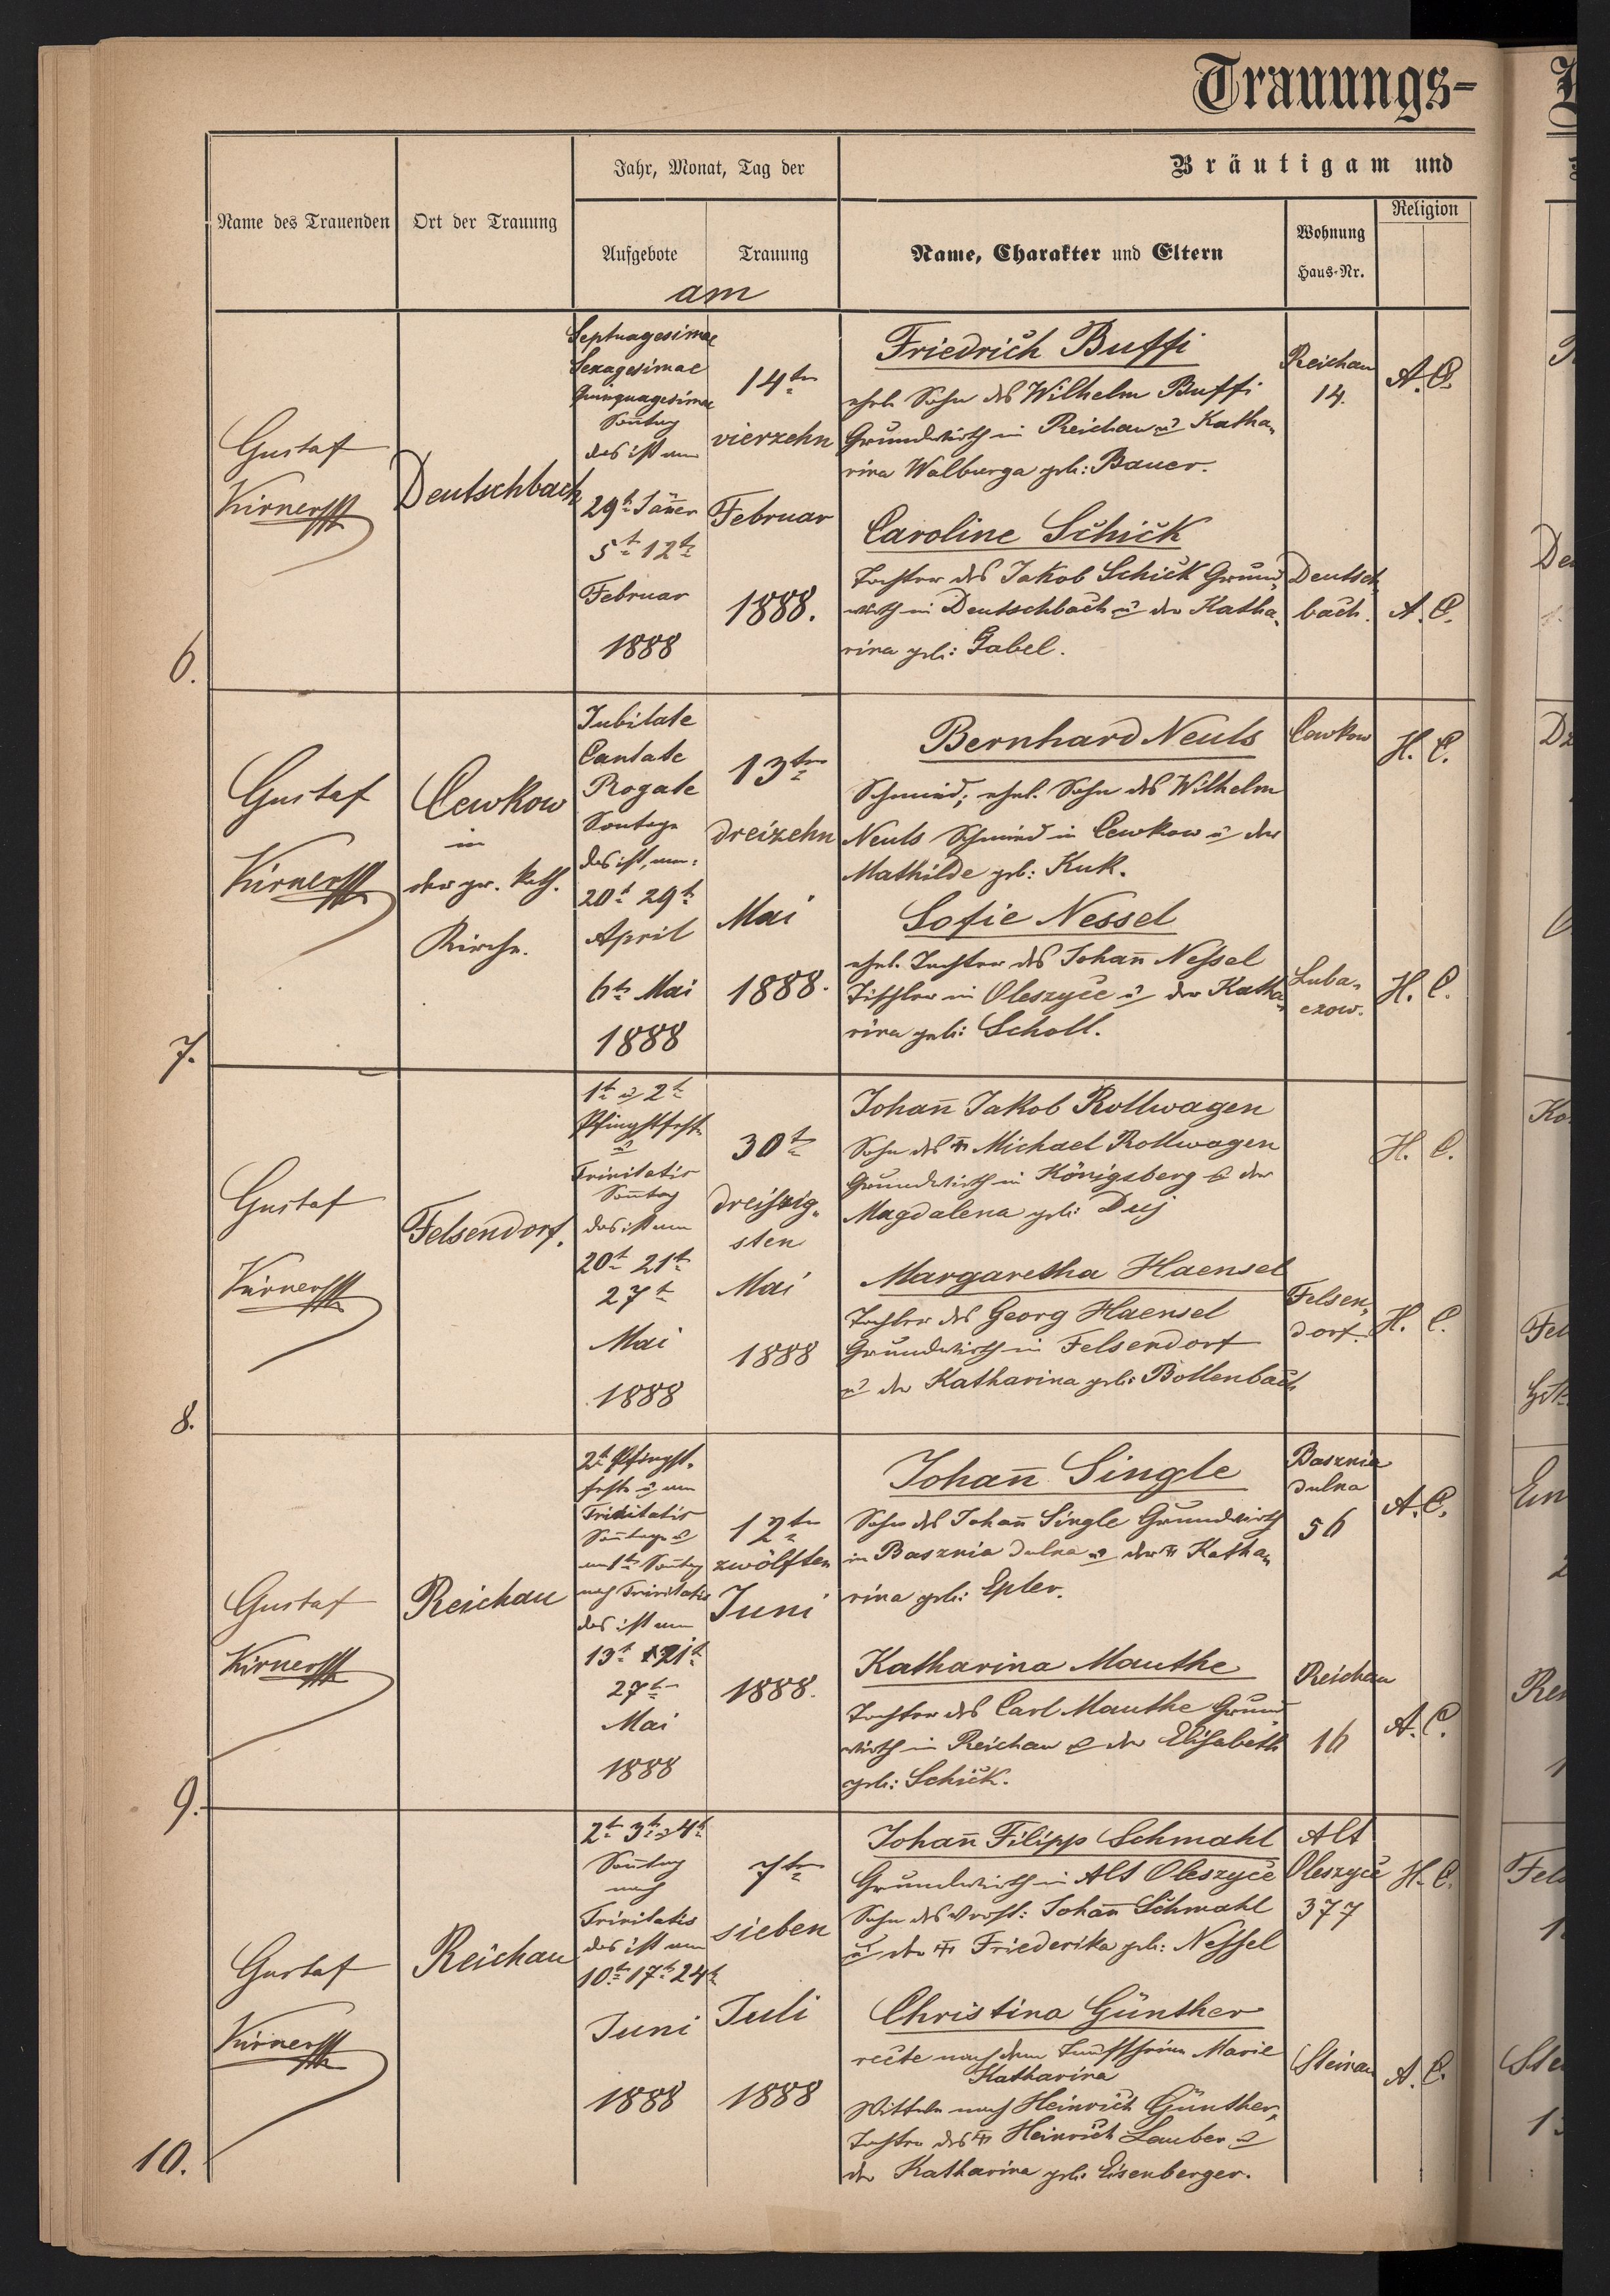 Trauungs-
Name des Trauenden
Ort der Trauung
Jahr, Monat, Tag der
Aufgebote
Trauung
am
Bräutigam und
Name, Charakter und Eltern
Wohnung
Haus-Nr.
Religion
6.
Gustaf
Kirner
Deutschbach
Septuagesimae
Sexagesimae
Quinquagesimae
Sontag
das ist am
29t Jäner
5t 12t
Februar
1888
14ten
vierzehn
Februar
1888.
Friedrich Buffi
ehel. Sohn des Wilhelm Buffi
Grundwirth in Reichau u Katha-
rina Walburga geb: Bauer.
Reichau
14.
A. C.
Caroline Schick
Tochter des Jakob Schick Grund-
wirth in Deutschbach u der Katha-
rina geb: Gabel.
Deutsch-
bach.
A. C.
7.
Gustaf
Kirner
Cewkow
in
der gr. kath.
Kirche.
Jubilate
Cantate
Rogate
Sontage
das ist, am:
20t 29t
April
6t Mai
1888
13ten
dreizehn
Mai
1888.
Bernhard Neuls
Schmied; ehel. Sohn des Wilhelm
Neuls Schmied in Cewkow u der
Mathilde geb: Kuk.
Cewkow
H. C.
Sofie Nessel
ehel. Tochter des Johan̄ Nessel
Tischler in Oleszyce u der Katha-
rina geb: Scholl.
Luba-
czow.
H. C.
8.
Gustaf
Kirner
Felsendorf.
1t u 2t
Pfingstfest
u
Trinitatis
Son̄tag
das ist am
20t 21t
27t
Mai
1888
30t
dreiszig-
sten
Mai
1888
Johan̄ Jakob Rollwagen
Sohn des Michael Rollwagen
Grundwirth in Königsberg u der
Magdalena geb:
H. C.
Margaretha Haensel
Tochter des Georg Haensel
Grundwirth in Felsendorf
u der Katharina geb: Bottenbach
Felsen-
dorf.
H. C.
9.
Gustaf
Kirner
Reichau
2t Pfingst-
feste u am
Trinitatis
Son̄tage u
am 1t Son̄tag
nach Trinitatis
das ist am
13t 21t
27t
Mai
1888
12ten
zwölften
Juni
1888.
Johan̄ Single
Sohn des Johan̄ Single Grundwirth
in Basznia dulna u der Katha-
rina geb: Epler.
Basznia
dulna
56
A. C.
Katharina Mauthe
Tochter des Carl Mauthe Grund
wirth in Reichau u der Elisabeth
geb: Schick.
Reichau
16
A. C.
10.
Gustaf
Kirner
Reichau
2t 3t u 4t
Son̄tag
nach
Trinitatis
das ist am
10t 17t 24t
Juni
1888
7ten
sieben
Juli
1888
Johan̄ Filipp Schmahl
Grundwirth in Alt Oleszyce
Sohn des Johan̄ Schmahl
u der Friederika geb: Nessel
Alt
Oleszyce
377
H. C.
Christina Günther
recte nach dem Taufschein Marie
Katharina
Wittwe nach Heinrich Günther,
Tochter des Heinrich Lauber u
der Katharina geb: Eisenberger.
Steinau
A. C.